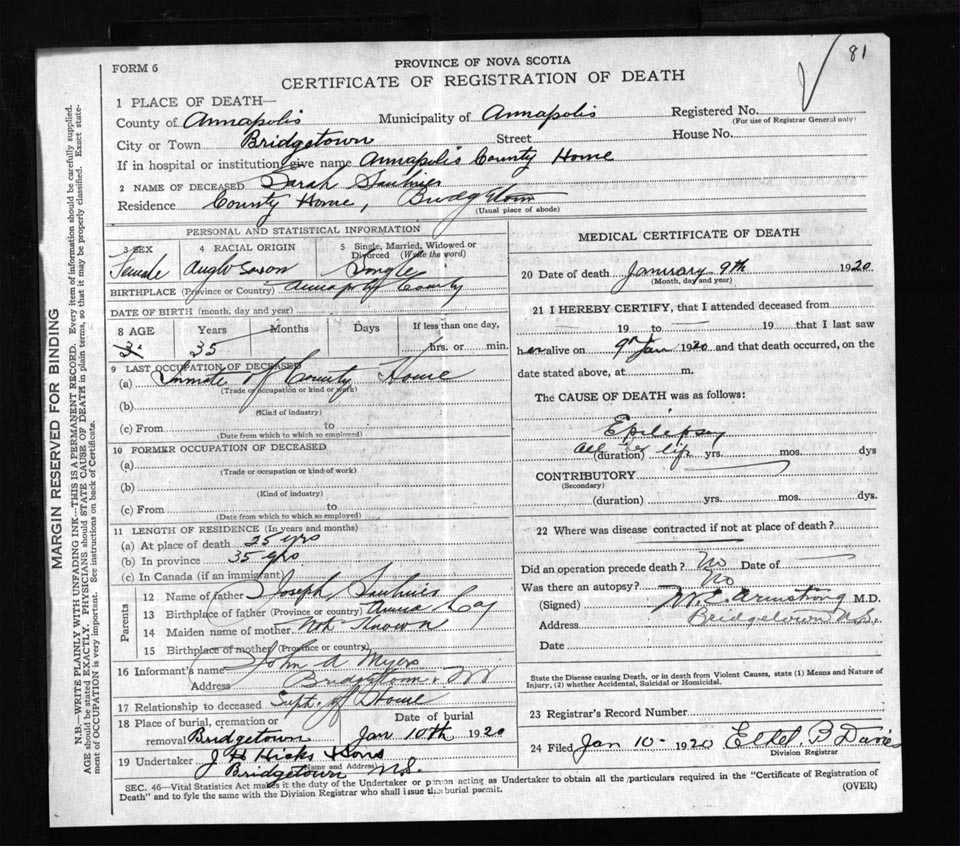 81
PROVINCE OF NOVA SCOTIA
FORM 6
CERTIFICATE OF REGISTRATION OF DEATH
1 PLACE OF DEATH—
County of Annapolis Municipality of Annapolis Registered No.
(For use of Registrar General only)
City or Town Bridgetown Street House No.
If in hospital or institution give name Annapolis County Home
2 NAME OF DECEASED Sarah
Residence County Home, Bridgetown
(Usual place of abode)
PERSONAL AND STATISTICAL INFORMATION
3 SEX 4 RACIAL ORIGIN 5 Single, Married, Widowed or Divorced (Write the word)
Female Anglo Saxon Single
BIRTHPLACE (Province or Country) Annapolis County
DATE OF BIRTH (month, day and year)
8 AGE Years Months Days If less than one day,
35 hrs. or min.
9 LAST OCCUPATION OF DECEASED
(a) Inmate of County Home
(Trade or occupation or kind of work)
(b)
(Kind of industry)
(c) From to
(Date from which to which so employed)
10 FORMER OCCUPATION OF DECEASED
(a)
(Trade or occupation or kind of work)
(b)
(Kind of industry)
(c) From to
(Date from which to which so employed)
11 LENGTH OF RESIDENCE (In years and months)
(a) At place of death 25 yrs
(b) In province 35 yrs
(c) In Canada (if an immigrant)
Parents
12 Name of father Joseph
13 Birthplace of father (Province or country) Anna Co
14 Maiden name of mother Not Known
15 Birthplace of mother (Province or country)
16 Informant's name John A Myers
Address Bridgetown
17 Relationship to deceased Supt. of Home
18 Place of burial, cremation or removal Bridgetown Date of burial Jan 10th 1920
19 Undertaker J H Hicks & Sons
(Name and Address)
Bridgetown N.S.
MEDICAL CERTIFICATE OF DEATH
20 Date of death January 9th 1920
(Month, day and year)
21 I HEREBY CERTIFY, that I attended deceased from
19 to 19 that I last saw
her alive on 9th Jan 1920 and that death occurred, on the
date stated above, at m.
The CAUSE OF DEATH was as follows:
Epilepsy
All her life
(duration) yrs. mos. dys
CONTRIBUTORY
(Secondary)
(duration) yrs. mos. dys.
22 Where was disease contracted if not at place of death?
Did an operation precede death? No Date of
Was there an autopsy? No
(Signed) Armstrong M.D.
Address Bridgetown N.S.
Date
State the Disease causing Death, or in death from Violent Causes, state (1) Means and Nature of
Injury, (2) whether Accidental, Suicidal or Homicidal.
23 Registrar's Record Number
24 Filed Jan 10 - 1920
Division Registrar
SEC. 46—Vital Statistics Act makes it the duty of the Undertaker or person acting as Undertaker to obtain all the particulars required in the "Certificate of Registration of
Death" and to fyle the same with the Division Registrar who shall issue the burial permit. (OVER)
MARGIN RESERVED FOR BINDING
N.B.—WRITE PLAINLY WITH UNFADING INK—THIS IS A PERMANENT RECORD. Every item of information should be carefully supplied.
AGE should be stated EXACTLY. PHYSICIANS should STATE CAUSE OF DEATH in plain terms, so that it may be properly classified. Exact statement of OCCUPATION is very important. See instructions on back of Certificate.